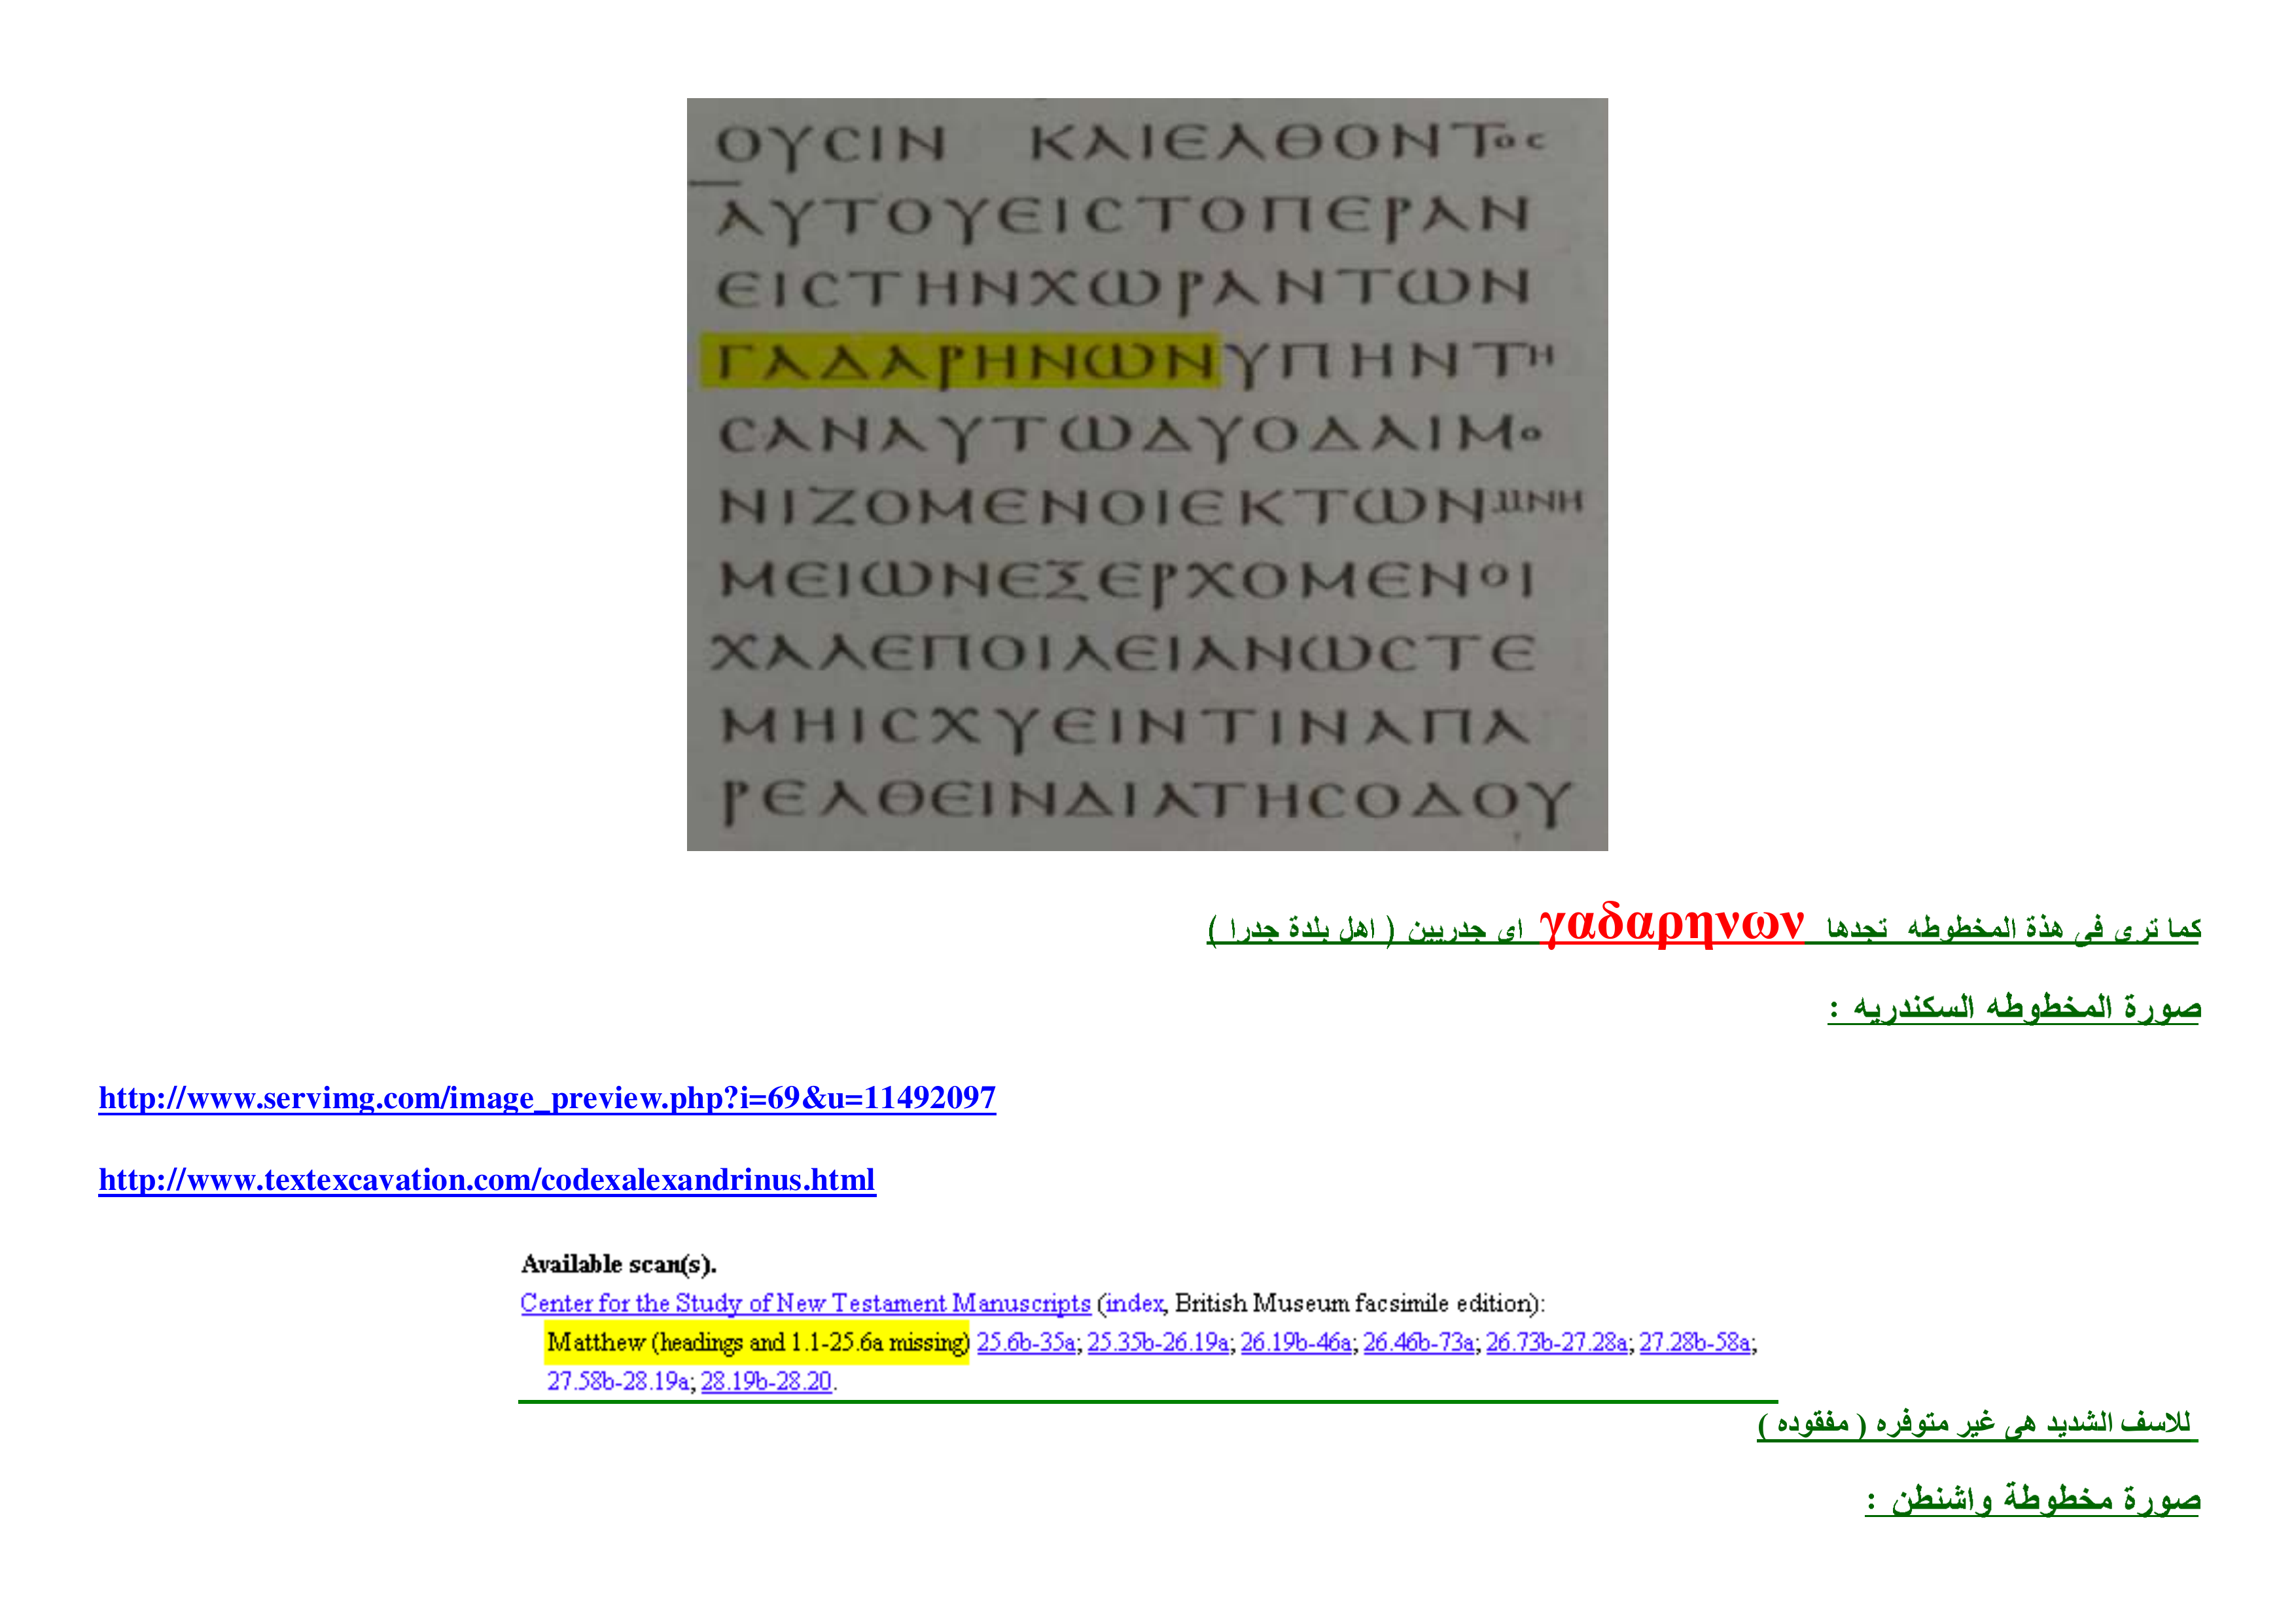 ΟΥCΙΝ ΚΑΙЄΛΘΟΝΤΟC
ΑΥΤΟΥЄΙCΤΟΠЄΡΑΝ
ЄΙCΤΗΝΧΩΡΑΝΤΩΝ
ΓΑΔΑΡΗΝΩΝΥΠΗΝΤΗ
CΑΝΑΥΤΩΔΥΟΔΑΙΜΟ
ΝΙΖΟΜЄΝΟΙЄΚΤΩΝΜΝΗ
ΜЄΙΩΝЄΞЄΡΧΟΜЄΝΟΙ
ΧΑΛЄΠΟΙΛЄΙΑΝΩCΤЄ
ΜΗΙCΧΥЄΙΝΤΙΝΑΠΑ
ΡЄΛΘЄΙΝΔΙΑΤΗCΟΔΟΥ
كما ترى فى هذة المخطوطه تجدها γαδαρηνων اى جدريين ( اهل بلدة جدرا )
صورة المخطوطه السكندريه :
http://www.servimg.com/image_preview.php?i=69&u=11492097
http://www.textexcavation.com/codexalexandrinus.html
Available scan(s).
Center for the Study of New Testament Manuscripts (index, British Museum facsimile edition):
Matthew (headings and 1.1-25.6a missing) 25.6b-35a; 25.35b-26.19a; 26.19b-46a; 26.46b-73a; 26.73b-27.28a; 27.28b-58a;
27.58b-28.19a; 28.19b-28.20.
للاسف الشديد هى غير متوفره ( مفقوده )
صورة مخطوطة واشنطن :